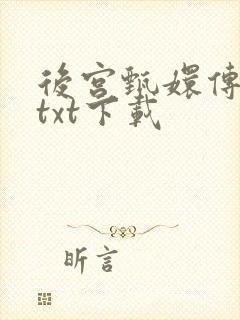 後宮甄嬛傳
txt下載
昕言